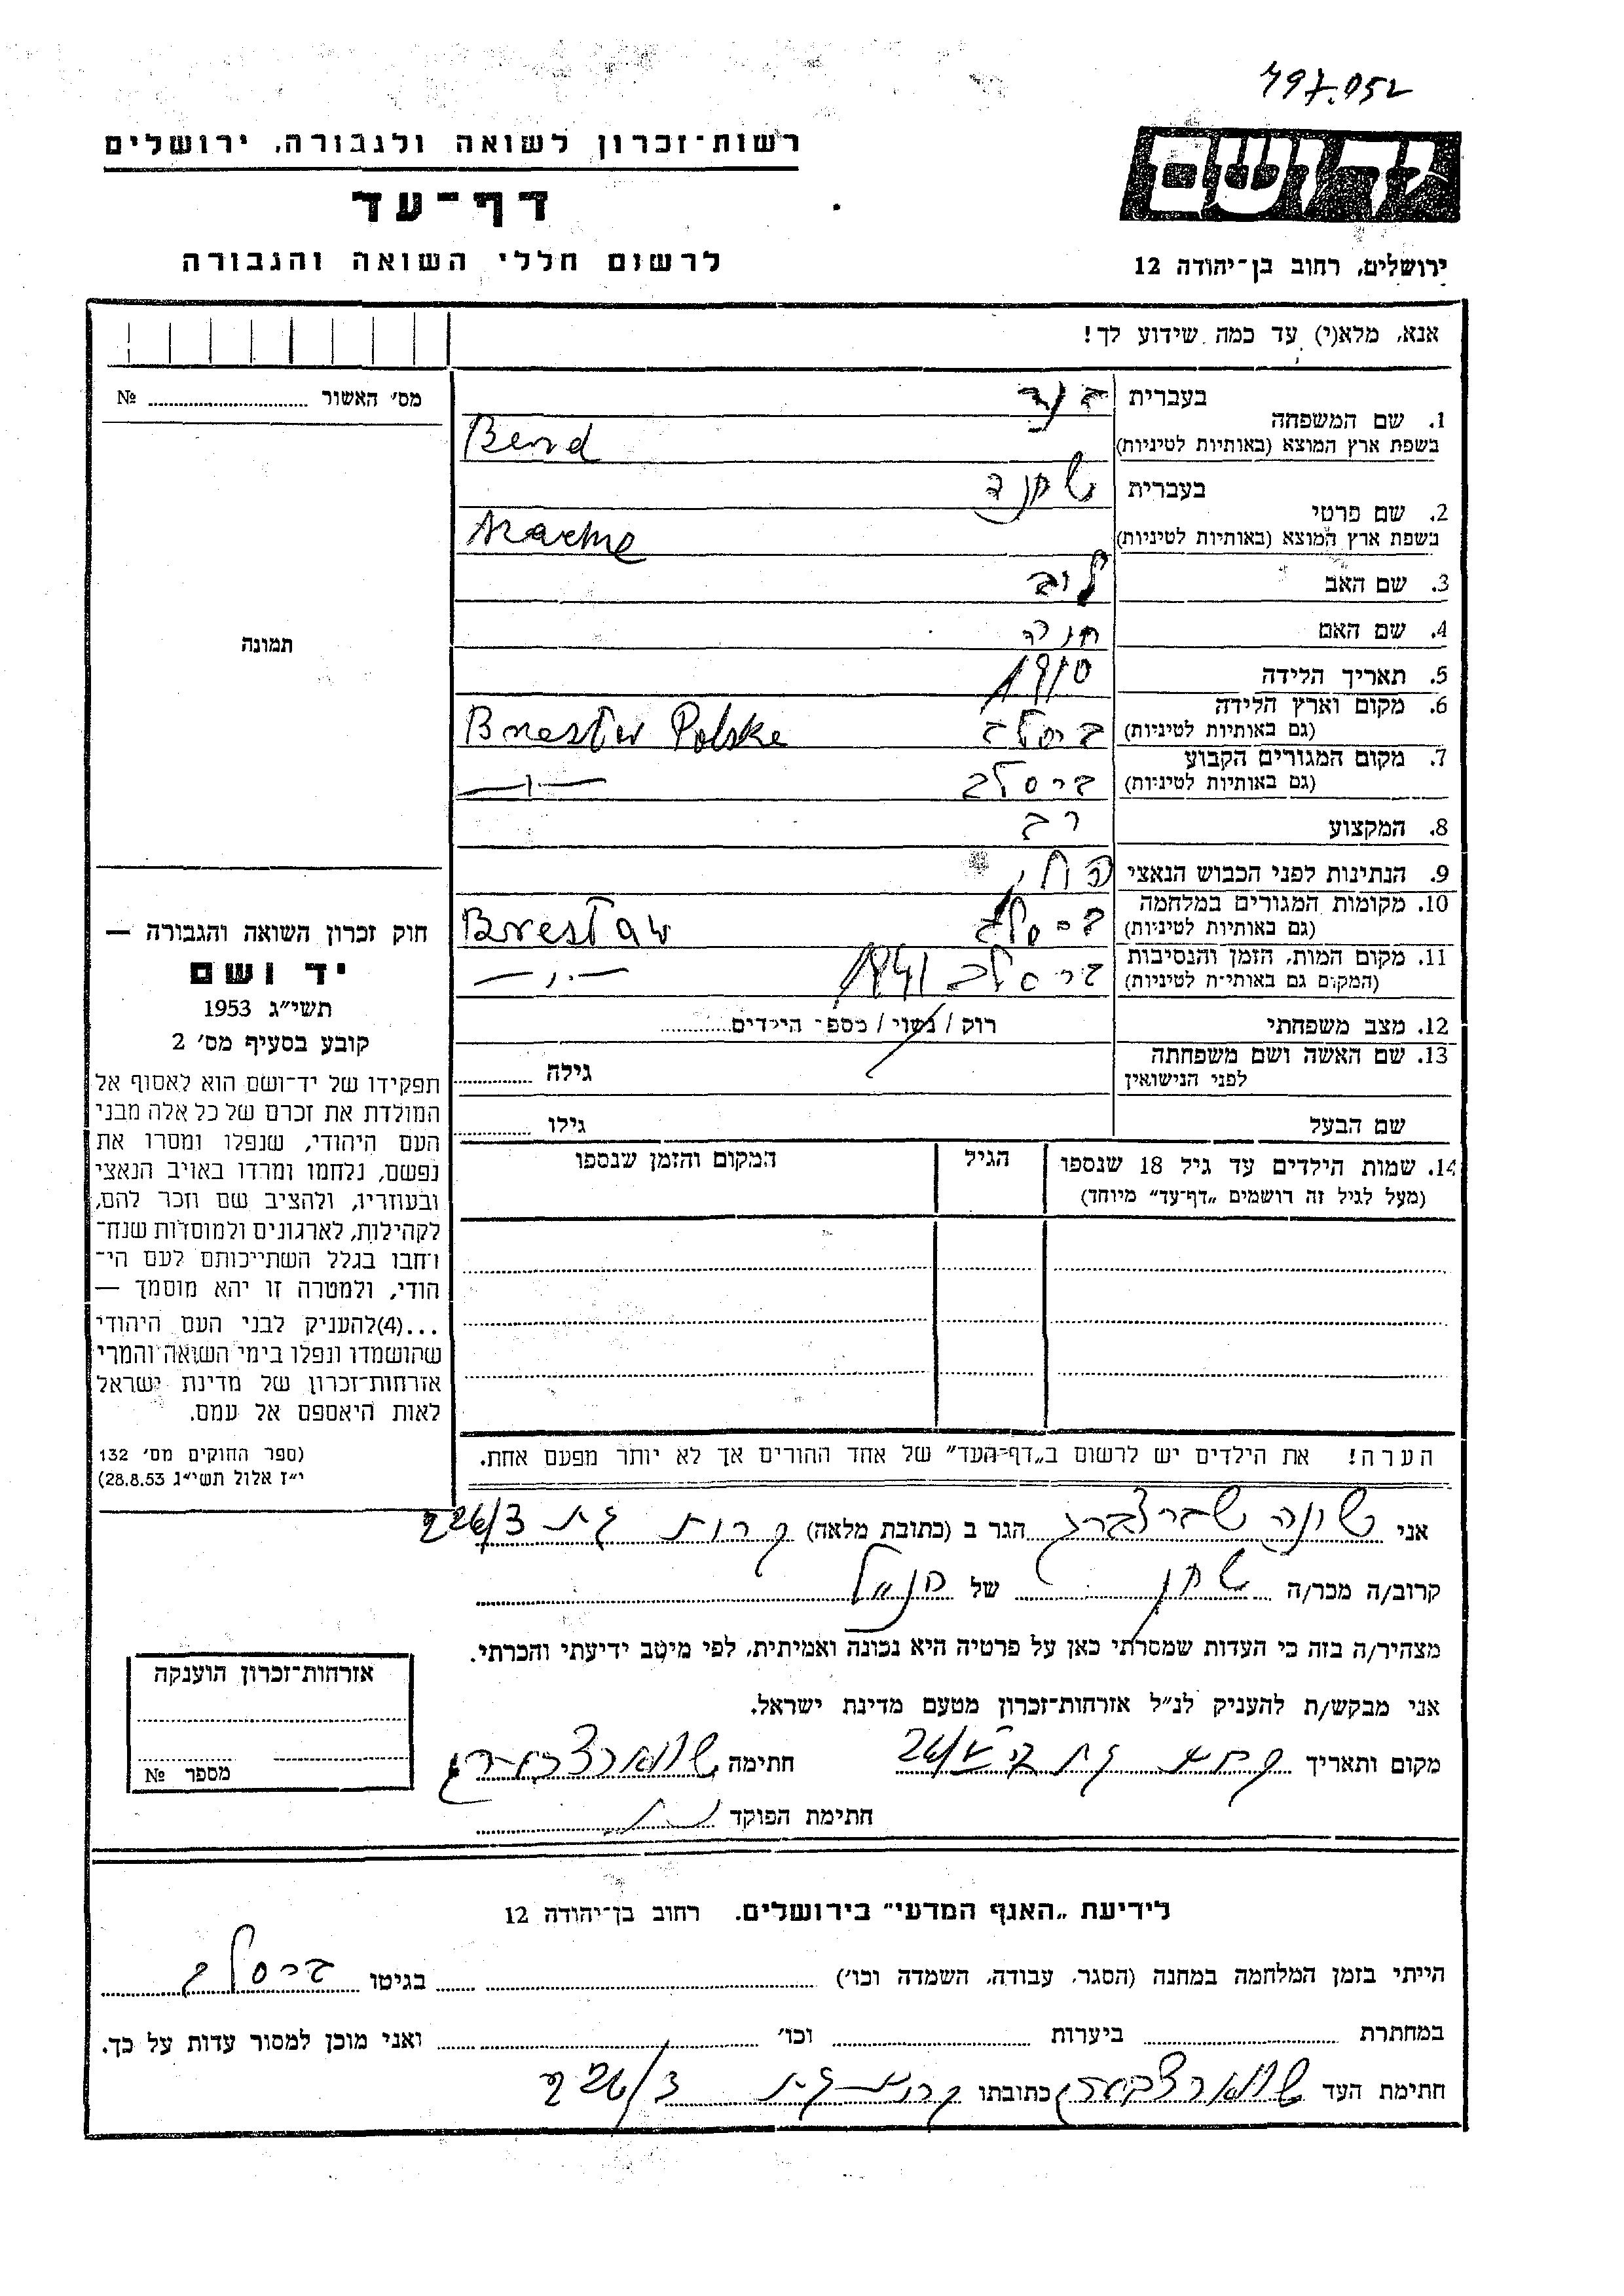 497.052
רשות־זכרון לשואה ולגבורה, ירושלים
ידושם
דף־עד
לרשום חללי השואה והגבורה
ירושלים, רחוב בן־יהודה 12
אנא, מלא(י) עד כמה שידוע לך!
מס׳ האשור № 
1. שם המשפחה
בעברית
בשפת ארץ המוצא (באותיות לטיניות) Bend
2. שם פרטי
בעברית
בשפת ארץ המוצא (באותיות לטיניות)
3. שם האב לוב
4. שם האם חנה
5. תאריך הלידה 1910
6. מקום וארץ הלידה
(גם באותיות לטיניות) ברסלב Polske
7. מקום המגורים הקבוע
(גם באותיות לטיניות) ברסלב —"—
8. המקצוע רב
9. הנתינות לפני הכבוש הנאצי
10. מקומות המגורים במלחמה
(גם באותיות לטיניות) ברסלב Breslaw
11. מקום המות, הזמן והנסיבות
(המקום גם באותיות לטיניות) ברסלב 1941 —"—
12. מצב משפחתי רוק / נשוי / מספר הילדים
13. שם האשה ושם משפחתה
לפני הנישואין
גילה
שם הבעל גילו
14. שמות הילדים עד גיל 18 שנספו הגיל המקום והזמן שנספו
(מעל לגיל זה רושמים „דף־עד” מיוחד)
הערה! את הילדים יש לרשום ב„דף־העד” של אחד ההורים אך לא יותר מפעם אחת.
תמונה
חוק זכרון השואה והגבורה —
יד ושם
תשי״ג 1953
קובע בסעיף מס׳ 2
תפקידו של יד־ושם הוא לאסוף אל
המולדת את זכרם של כל אלה מבני
העם היהודי, שנפלו ומסרו את
נפשם, נלחמו ומרדו באויב הנאצי
ובעוזריו, ולהציב שם וזכר להם,
לקהילות, לארגונים ולמוסדות שנח־
רחבו בגלל השתייכותם לעם הי־
הודי, ולמטרה זו יהא מוסמך —
...(4)להעניק לבני העם היהודי
שהושמדו ונפלו בימי השואה והמרי
אזרחות־זכרון של מדינת ישראל
לאות היאספם אל עמם.
(ספר החוקים מס׳ 132
י״ז אלול תשי״ג 28.8.53)
אני הגר ב (כתובת מלאה) קרית גת 226/3
קרוב/ה מכר/ה שכן של
מצהיר/ה בזה כי העדות שמסרתי כאן על פרטיה היא נכונה ואמיתית, לפי מיטב ידיעתי והכרתי.
אני מבקש/ת להעניק לנ״ל אזרחות־זכרון מטעם מדינת ישראל.
מקום ותאריך גת חתימה
חתימת הפוקד
אזרחות־זכרון הוענקה
מספר №
לידיעת „האגף המדעי” בירושלים. רחוב בן־יהודה 12
הייתי בזמן המלחמה במחנה (הסגר, עבודה, השמדה וכו׳) בגיטו ברסלב
במחתרת ביערות וכו׳ ואני מוכן למסור עדות על כך.
חתימת העד כתובתו קרית גת 226/3